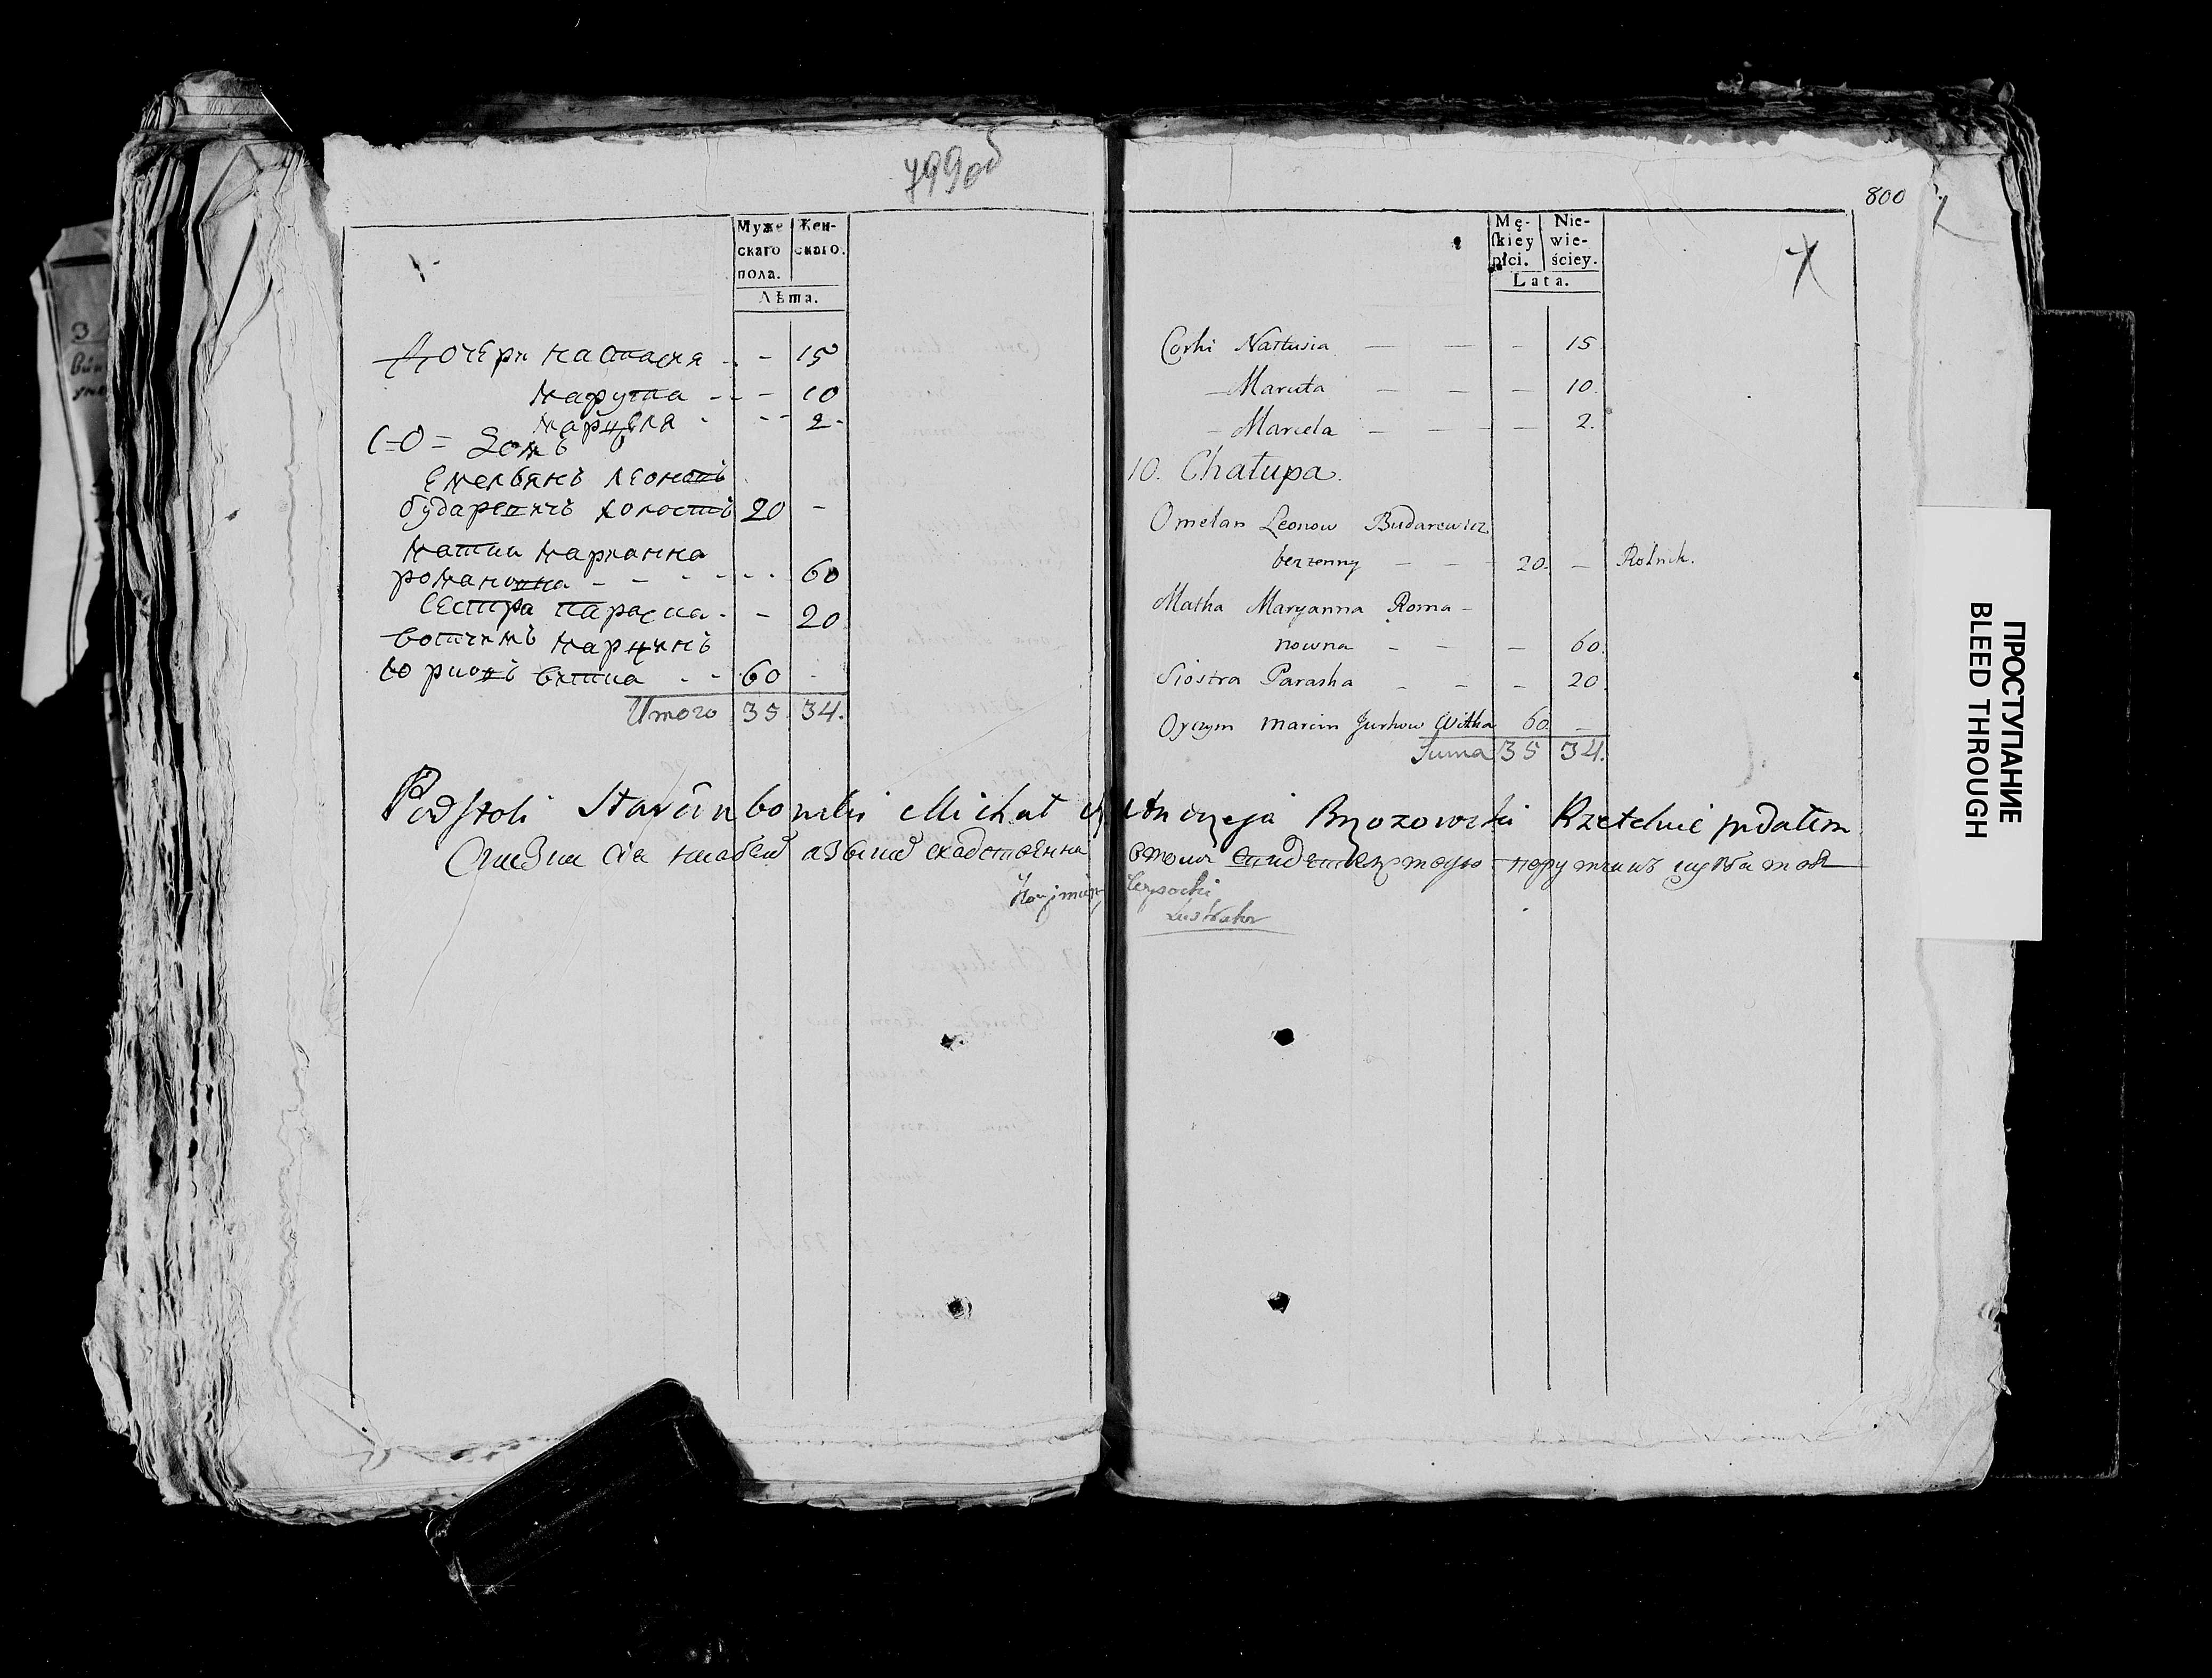 799об
Муже
скаго
пола.
Жен-
скаго.
Лѣта.
Дочери Настася - - 15
Марута - - - 10
Марцеля - - - 2 -
10 = Домъ
Емельянъ Леоновъ
Бударевичъ холостъ 20 -
Матка Марианна
Романовна - - - - - 60
Сестра Параска - - 20
Вотчимъ Марцинъ
Юрковъ Витка - - 60 -
Итого 35 34.
800
Mę-
ſkiey
płci.
Nie-
wie-
ściey.
Lata.
Corki Nastusia — — — 15
— Maruta — — — 10.
— Marcela — — — 2.
10. Chałupa.
Omelan Leonow Budarewicz
bezzenny — — 20. — Rolnik.
Matka Maryanna Roma-
nowna — — — 60.
Siostra Paraska — — — 20.
Oyczym Marcin Jurkow Witka 60 —
Suma 35 34.
Podstoli Michał Brzozowski Rzetelnie podałem
Lustrator
ПРОСТУПАНИЕ
BLEED THROUGH